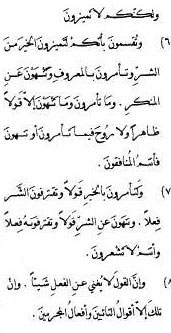 ولكنّكم لا تميزون
(٦) وتقسمون بأنكم لتميزون الخير من
الشر وتأمرون بالمعروف وتنهون عن
المنكر . وما تأمرون وما تنهون إلا قولاً
ظاهراً ولا روح فيما تأمرون أو تنهون
فأنتم المنافقون .
(٧) وتأمرون بالخير قولاً وتقترفون الشر
فعلاً . وتنهون عن الشر قولاً وتقترفونه فعلاً
وأنتم لا تشعرون .
(٨) وإن القول لا يغني عن الفعل شيئاً . وإن
تلك إلا أقوال التائبين وأفعال المجرمين .